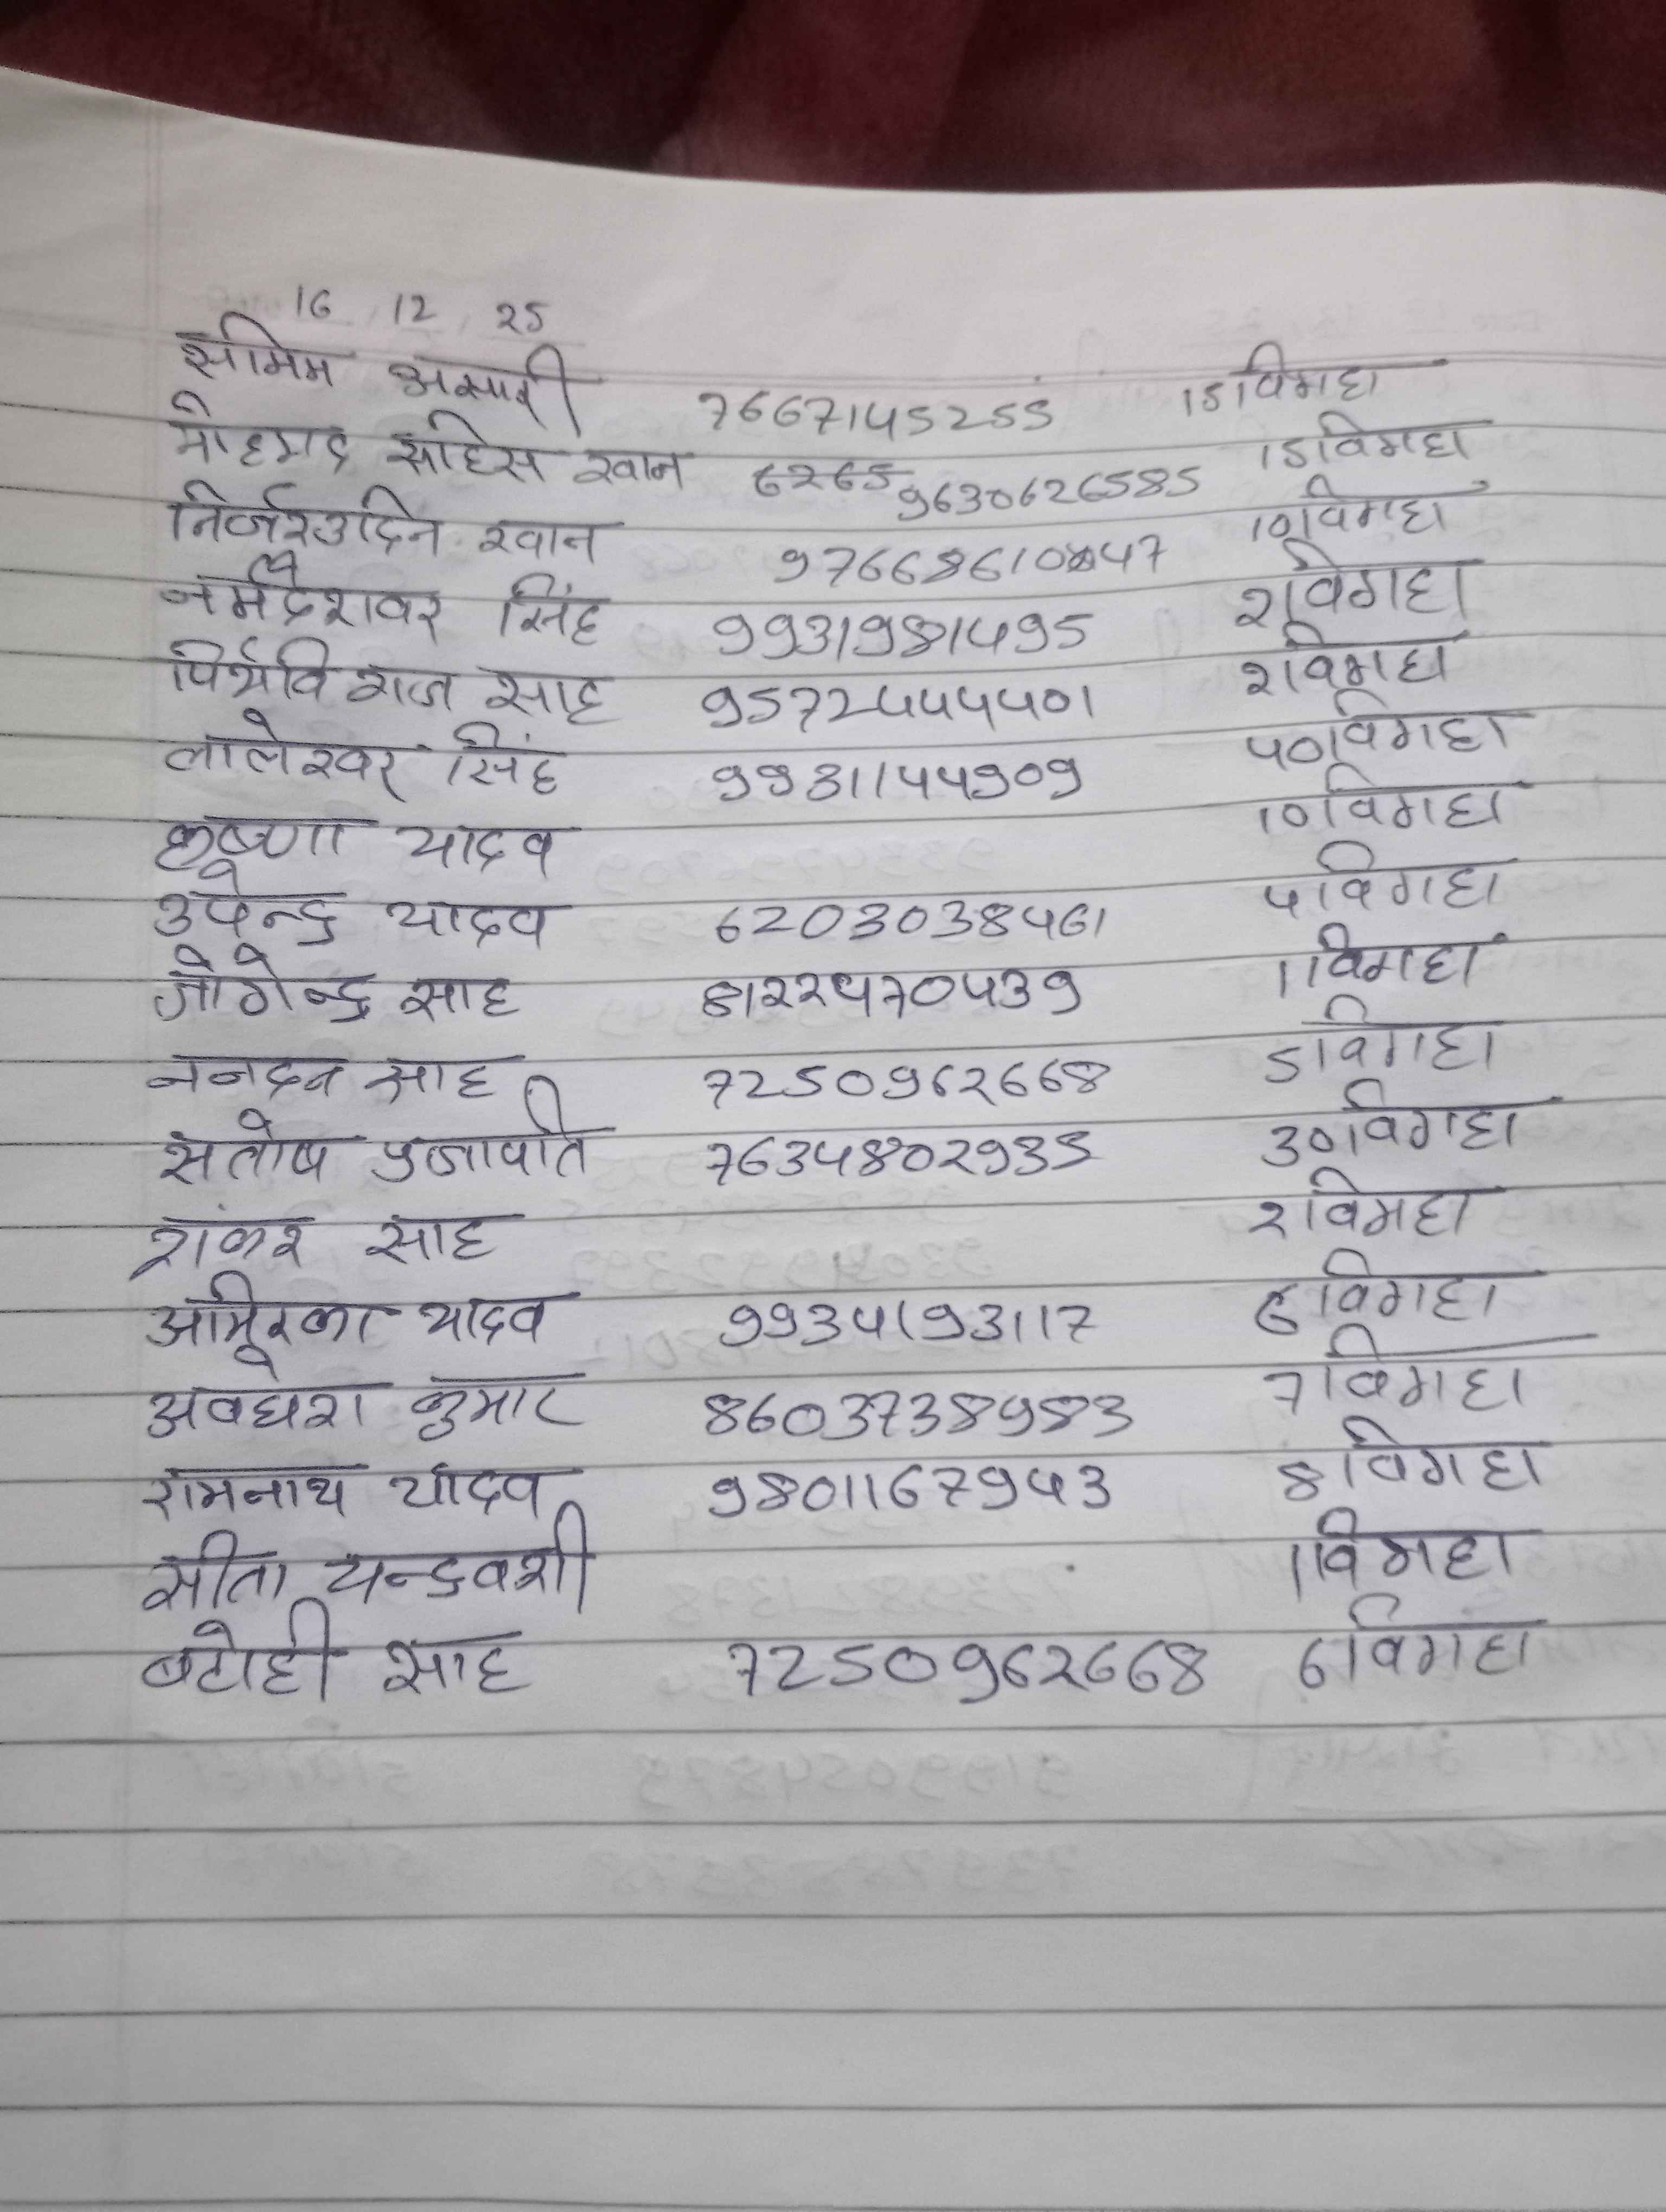 16 12 25
समिम असारी 7667145255 15 विगहा
मोहमद सोहेस खान 6265 9630626585 15 विगहा
निर्जरउदिन खान 10 विगहा
नर्मदेशवर सिंह 9931981495 2 विगहा
पिर्थवि राज साह 9572444401 2 विगहा
लालेश्वर सिंह 9931144909 40 विगहा
कृष्णा यादव 10 विगहा
उपेन्द्र यादव 6203038461 4 विगहा
जोगेन्द्र साह 8122470439 1 विगहा
ननदन साह 7250962668 5 विगहा
सतोष प्रजापति 7634802935 30 विगहा
शंकर साह 2 विगहा
आमिरका यादव 9934193117 6 विगहा
अवधेश कुमार 8603738983 7 विगहा
रामनाथ यादव 9801167943 8 विगहा
सीता चन्द्रवशी 1 विगहा
बटोही साह 7250962668 6 विगहा